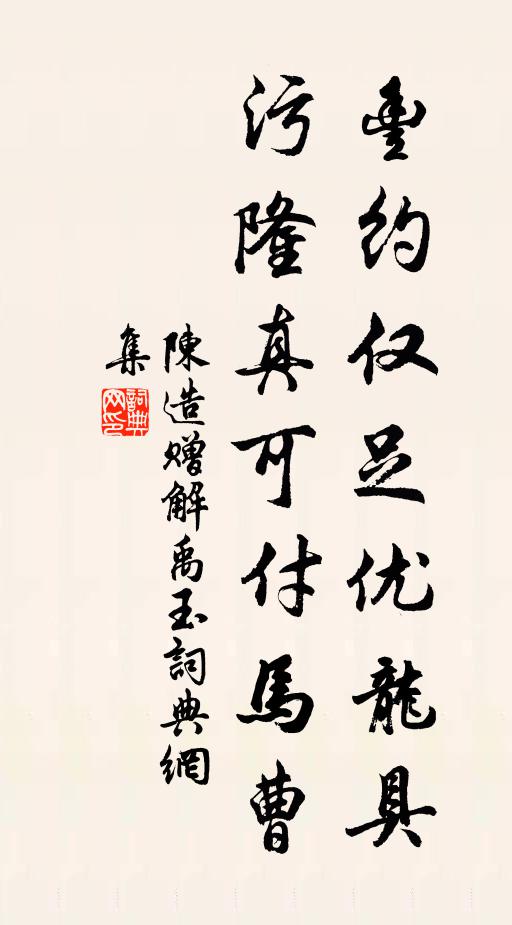 豐约仅足优龍具
污隆真可付馬曹
陳造赠解禹玉詞典網
集
詞典網印